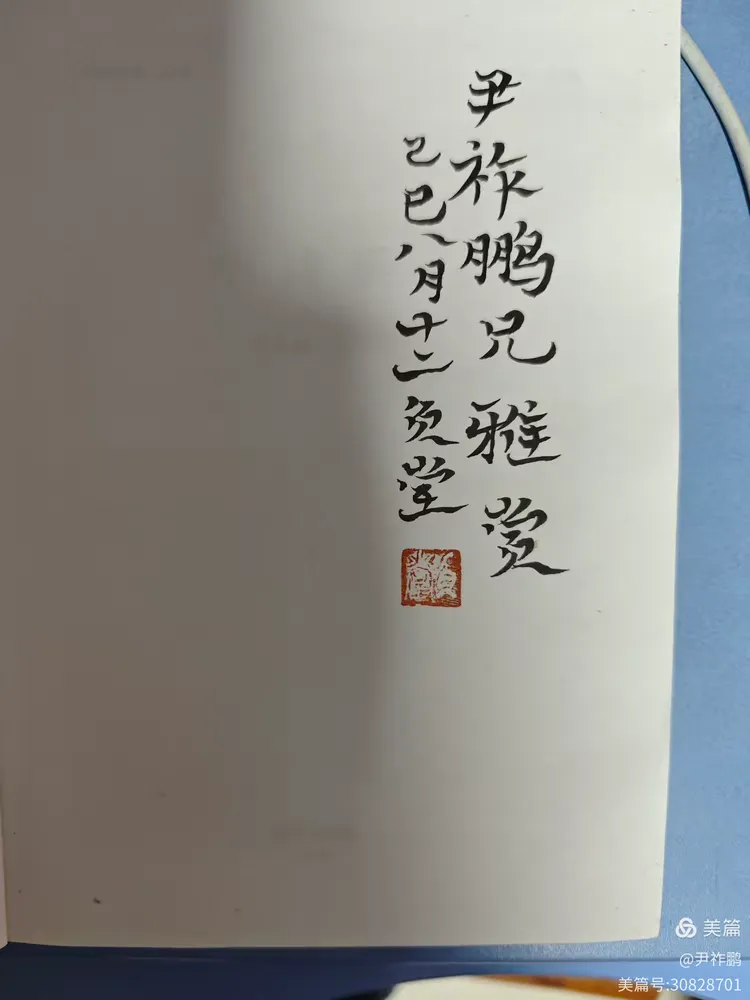 尹祚鹏兄雅赏
己巳八月十二负堂
美篇
@尹祚鹏
美篇号:30828701